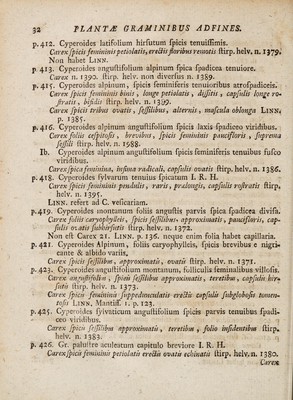 32 PLANTÆ GRAMINIBUS ADFINES.
p. 412. Cyperoides latifolium hirsutum spicis tenuissimis.
Carex spicis femininis petiolatis, erectis floribus remotis stirp. helv. n. 1379.
Non habet LINN.
p. 413. Cyperoides angustifolium alpinum spica spadicea tenuiore.
Carex n. 1390. stirp. helv. non diversus n. 1389.
p. 415. Cyperoides alpinum, spicis seminiferis tenuioribus atrospadiceis.
Carex spicis femininis binis, longe petiolatis, dissitis, capsulis longe ro-
stratis, bifidis stirp. helv. n. 1399.
Carex spicis tribus ovatis, sessilibus, alternis, mascula oblonga LINN.
p. 1385.
p. 416. Cyperoides alpinum angustifolium spicis laxis spadiceo viridibus.
Carex foliis cespitosis, brevibus, spicis femininis paucifloris, suprema
sessili stirp. helv. n. 1588.
Ib. Cyperoides alpinum angustifolium spicis seminiferis tenuibus fusco
viridibus.
Carex spica feminina, infima radicali, capsulis ovatis stirp. helv. n. 1386.
p. 418. Cyperoides sylvarum tenuius spicatum I. R. H.
Carex spicis femininis pendulis, raris, prælongis, capsulis rostratis stirp.
helv. n. 1395.
LINN. refert ad C. vesicariam.
p. 419. Cyperoides montanum foliis angustis parvis spica spadicea divisa.
Carex foliis caryophylleis, spicis sessilibus approximatis, paucifloris, cap-
sulis ovatis subhirsutis stirp. helv. n. 1372.
Non est Carex 21. LINN. p. 136. neque enim folia habet capillaria.
p. 421. Cyperoides Alpinum, foliis caryophylleis, spicis brevibus e nigri-
cante & albido variis.
Carex spicis sessilibus, approximatis, ovatis stirp. helv. n. 1371.
p. 423. Cyperoides angustifolium montanum, folliculis seminalibus villosis.
Carex angustifolia, spicis sessilibus approximatis, teretibus, capsulis hir-
sutis stirp. helv. n. 1373.
Carex spicis femininis subpedunculatis erectis capsulis subglobosis tomen-
tosis LINN. Mantiss. 1. p. 123.
p. 425. Cyperoides sylvaticum angustifolium spicis parvis tenuibus spadi-
ceo viridibus.
Carex spicis sessilibus approximatis, teretibus, folio insidentibus stirp.
helv. n. 1383.
p. 426. Gr. palustre aculeatum capitulo breviore I. R. H.
Carex spicis femininis petiolatis erectis ovatis echinatis stirp. helv. n. 1380.
Carex